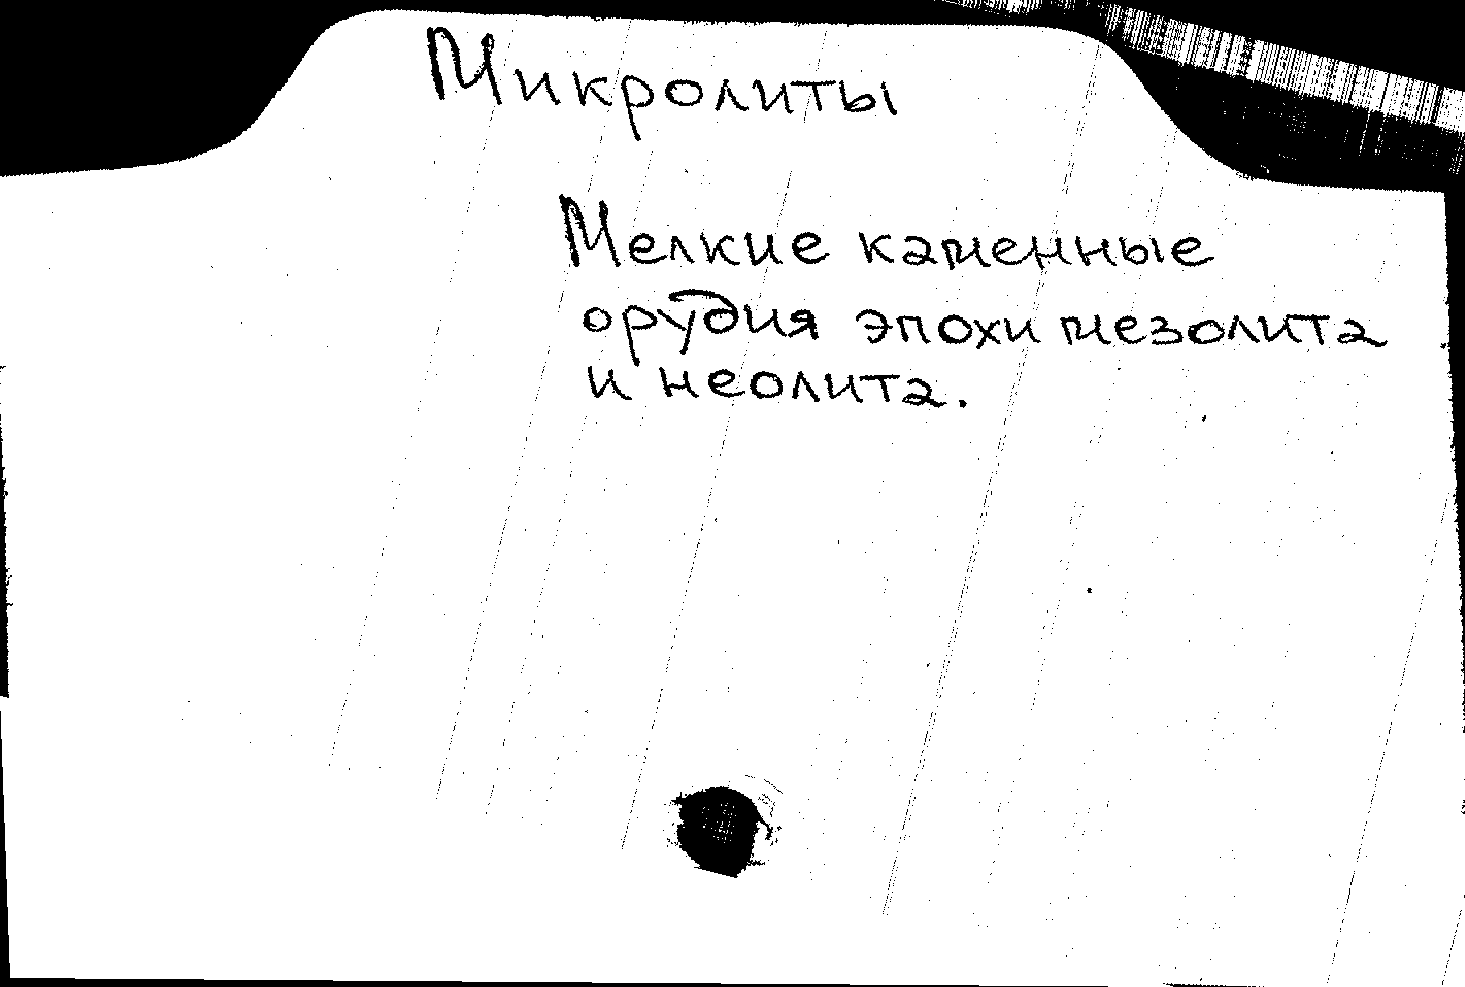 Микролиты
Мелкие каменные
орудия эпохи мезолита
и неолита.